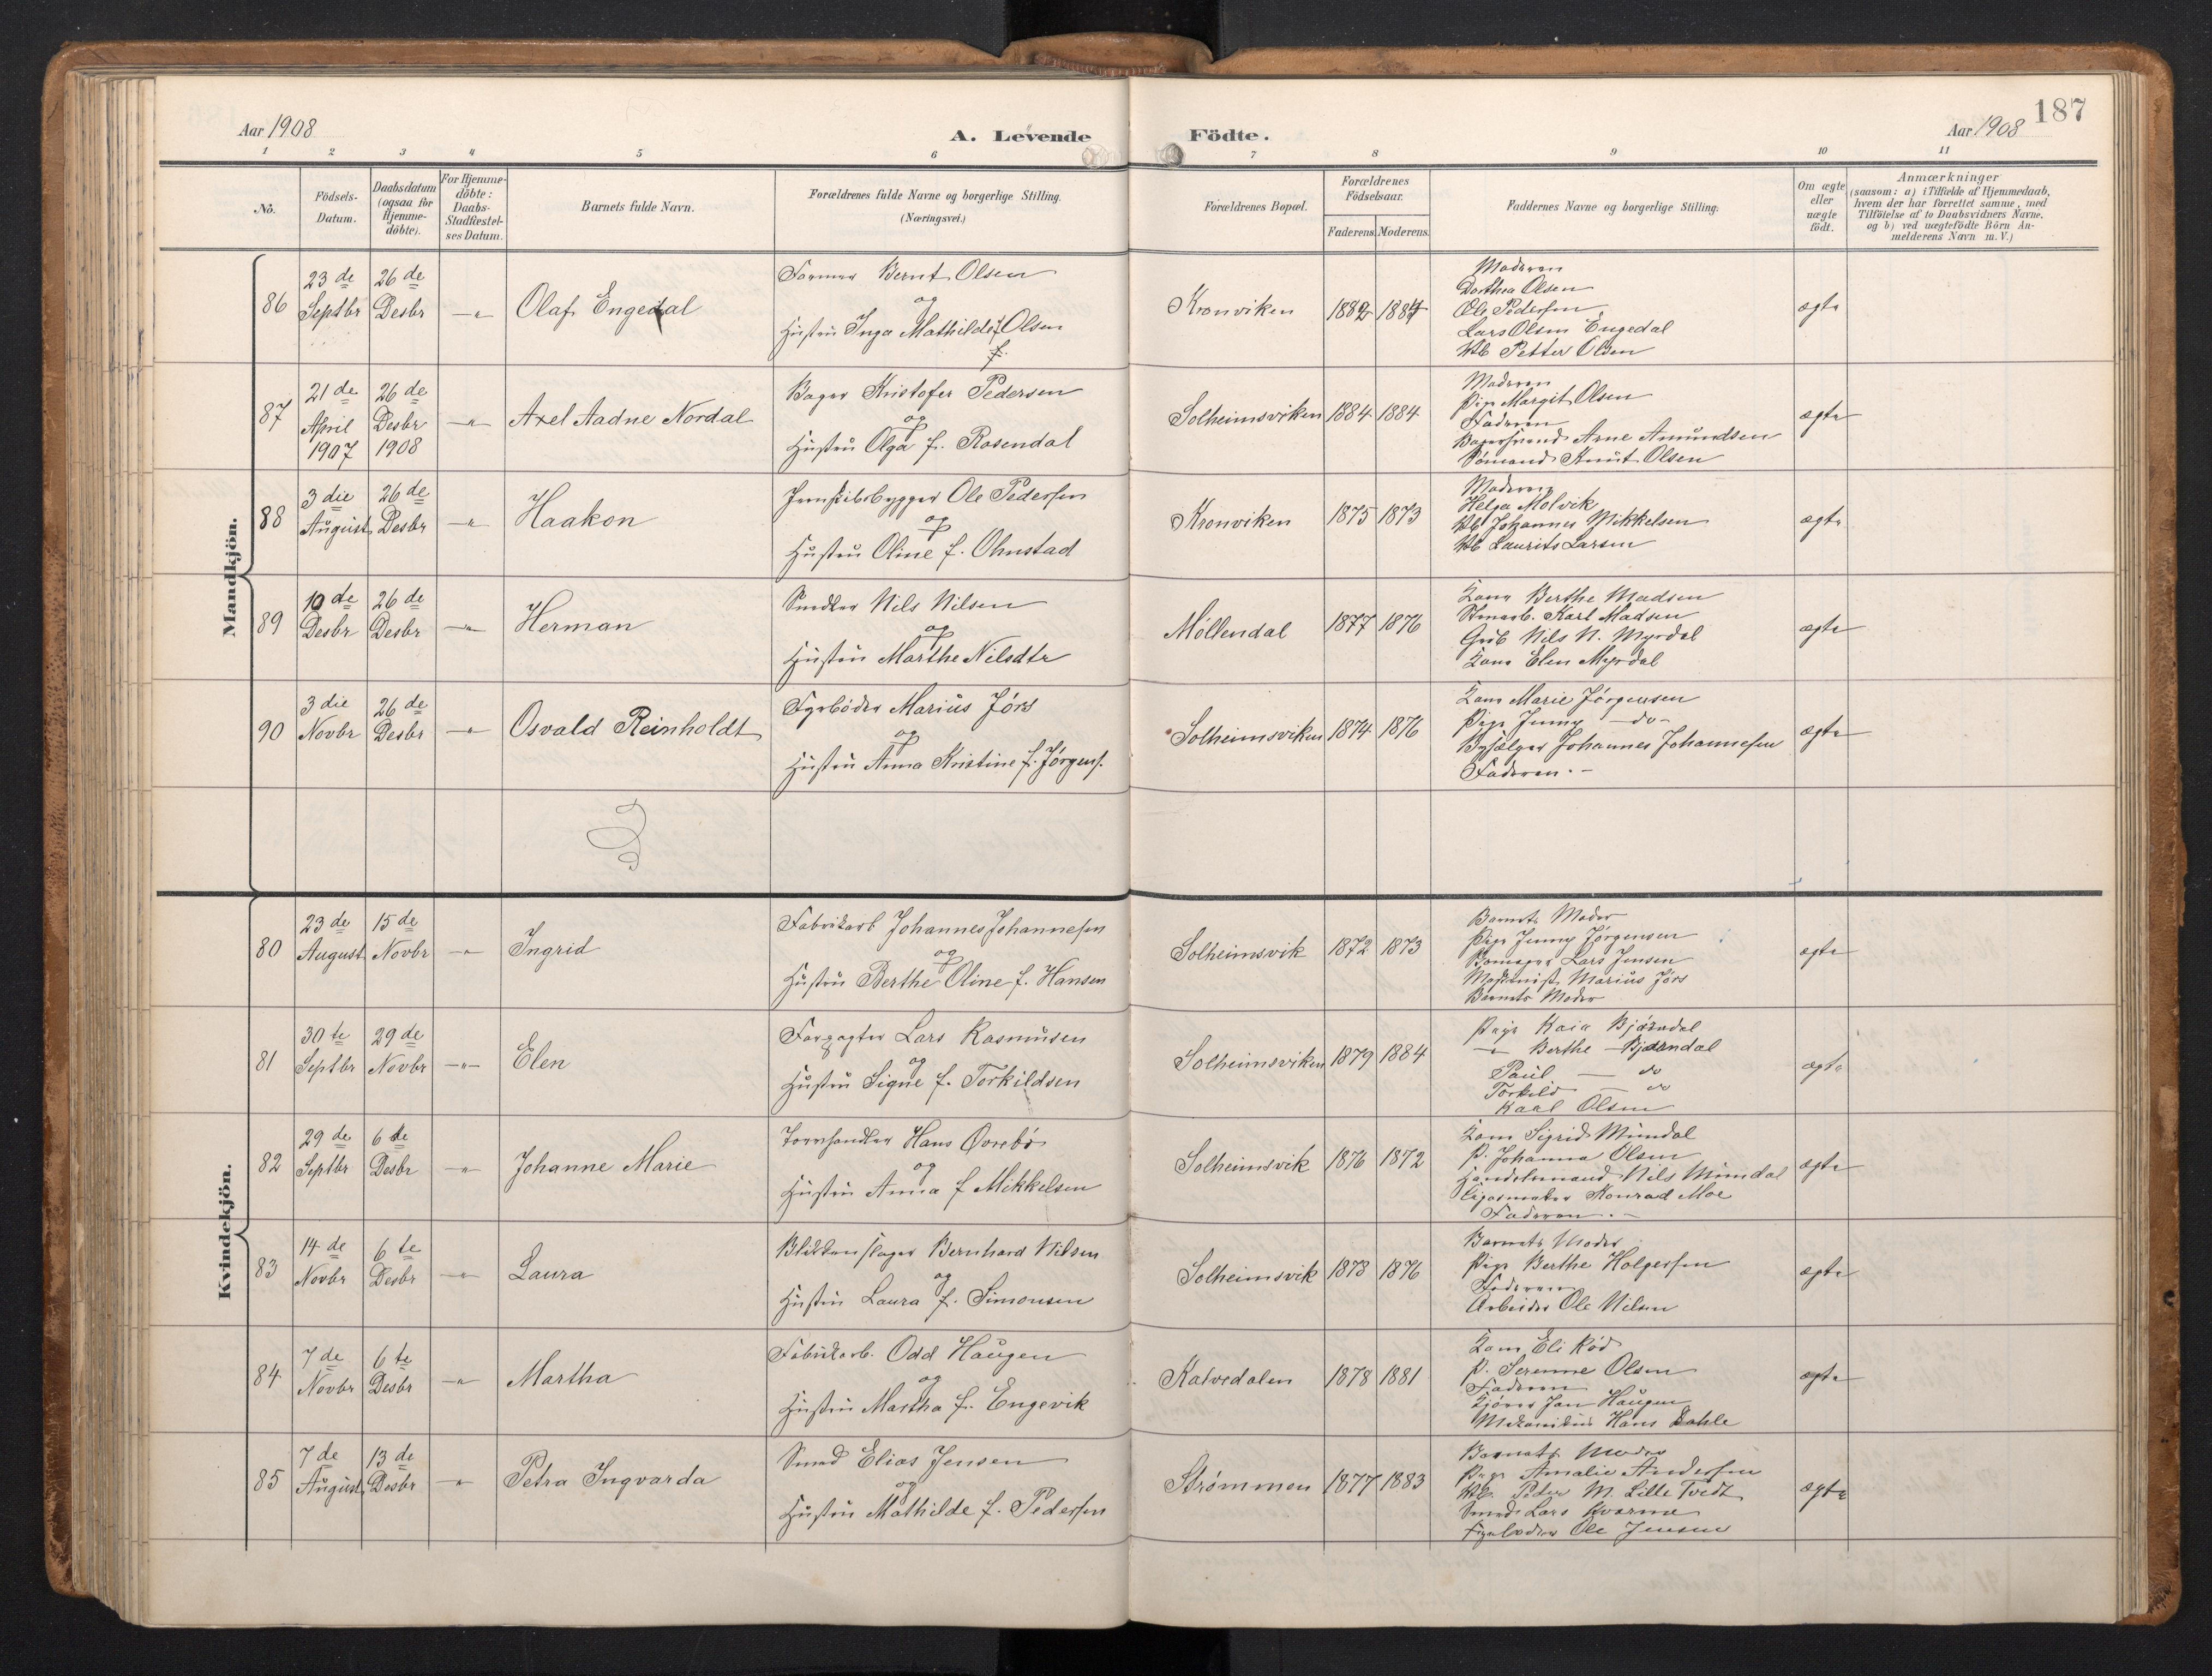 187
Aar 1908
A. Levende Födte.
Aar 1908
1 2 3 4 5 6 7 8 9 10 11
No.
Födsels-
Datum.
Daabsdatum
(ogsaa for
Hjemme-
döbte).
For Hjemme-
döbte:
Daabs-
Stadfæstel-
ses Datum.
Barnets fulde Navn.
Forældrenes fulde Navne og borgerlige Stilling.
(Næringsvei.)
Forældrenes Bopæl.
Forældrenes
Födselsaar.
Faderens. Moderens.
Faddernes Navne og borgerlige Stilling.
Om ægte
eller
uægte
födt.
Anmærkninger
(saasom: a) i Tilfælde af Hjemmedaab,
hvem der har forrettet samme, med
Tilföielse af to Daabsvidners Navne,
og b) ved uægtefödte Börn An-
melderens Navn m. V.)
Mandkjön.
86
23 de
Septbr
26 de
Desbr
Olaf Engedal
Former Bernt Olsen
og
Hustru Inga Mathilde f. Olsen
Kronviken
1882 1884
Moderen
Dorthea Olsen
Ole Pedersen
Lars Olsen Engedal
Petter Olsen
ægte
87
21 de
April
1907
26 de
Desbr
1908
Axel Aadne Nordal
Bager Kristofer Pedersen
og
Hustru Olga f. Rosendal
Solheimsviken
1884 1884
Moderen
Pige Margit Olsen
Faderen
Bagersvend Arne Amundsen
Sömand Knut Olsen
ægte
88
3 die
August
26 de
Desbr
Haakon
Jernskibsbygger Ole Pedersen
og
Hustru Oline f. Ohnstad
Kronviken
1875 1873
Moderen
Helga Molvik
Johannes Mikkelsen
Laurits Larsen
ægte
89
10 de
Desbr
26 de
Desbr
Herman
Snedker Nils Nilsen
og
Hustru Marthe Nilsdtr
Möllendal
1877 1876
Kone Berthe Madsen
Karl Madsen
Nils N. Myrdal
Kone Elen Myrdal
ægte
90
3 die
Novbr
26 de
Desbr
Osvald Reinholdt
Fyrböder Marius Jörs
og
Hustru Anna Kristine f. Jörgens.
Solheimsviken
1874 1876
Kone Marie Jörgensen
Pige Jenny - do -
Johannes Johannesen
Faderen. -
ægte
Kvindekjön.
80
23 de
August
15 de
Novbr
Ingrid
Fabrikarb Johannes Johannesen
og
Hustru Berthe Oline f. Hansen
Solheimsvik
1872 1873
Barnets Moder
Pige Jenny Jörgensen
Lars Jensen
Maskinist Marius Jörs
Barnets Moder
ægte
81
30 te
Septbr
29 de
Novbr
Elen
Forpagter Lars Rasmusen
og
Hustru Signe f. Torkildsen
Solheimsviken
1879 1884
Pige Kaia Bjørndal
Berthe Bjørndal
Paul - do
Torkild - do
Karl Olsen
ægte
82
29 de
Septbr
6 te
Desbr
Johanne Marie
Torvhandler Hans Övrebö
og
Hustru Anna f Mikkelsen
Solheimsvik
1876 1872
Kone Sigrid Mundal
P. Johanna Olsen
Handelsmand Nils Mundal
Cigarmaker Konrad Moe
Faderen. -
ægte
83
14 de
Novbr
6 te
Desbr
Laura
Blikkenslager Bernhard Nilsen
og
Hustru Laura f. Simonsen
Solheimsvik
1873 1876
Barnets Moder
Pige Berthe Holgersen
Faderen
Arbeider Ole Nilsen
ægte
84
7 de
Novbr
6 te
Desbr
Martha
Fabrikarb. Odd Haugen
og
Hustru Martha f. Engevik
Kalvedalen
1878 1881
Kone Eli Röd
P. Serenne Olsen
Faderen
Jan Haugen
Mekanikus Hans Dahle
ægte
85
7 de
August
13 de
Desbr
Petra Ingvarda
Smed Elias Jensen
og
Hustru Mathilde f. Pedersen
Strømmen
1877 1883
Barnets Moder
Pige Amalie Andersen
Peder M. Lille Tvedt
Smed Lars Kvarme
Fyrböder Ole Jensen
ægte